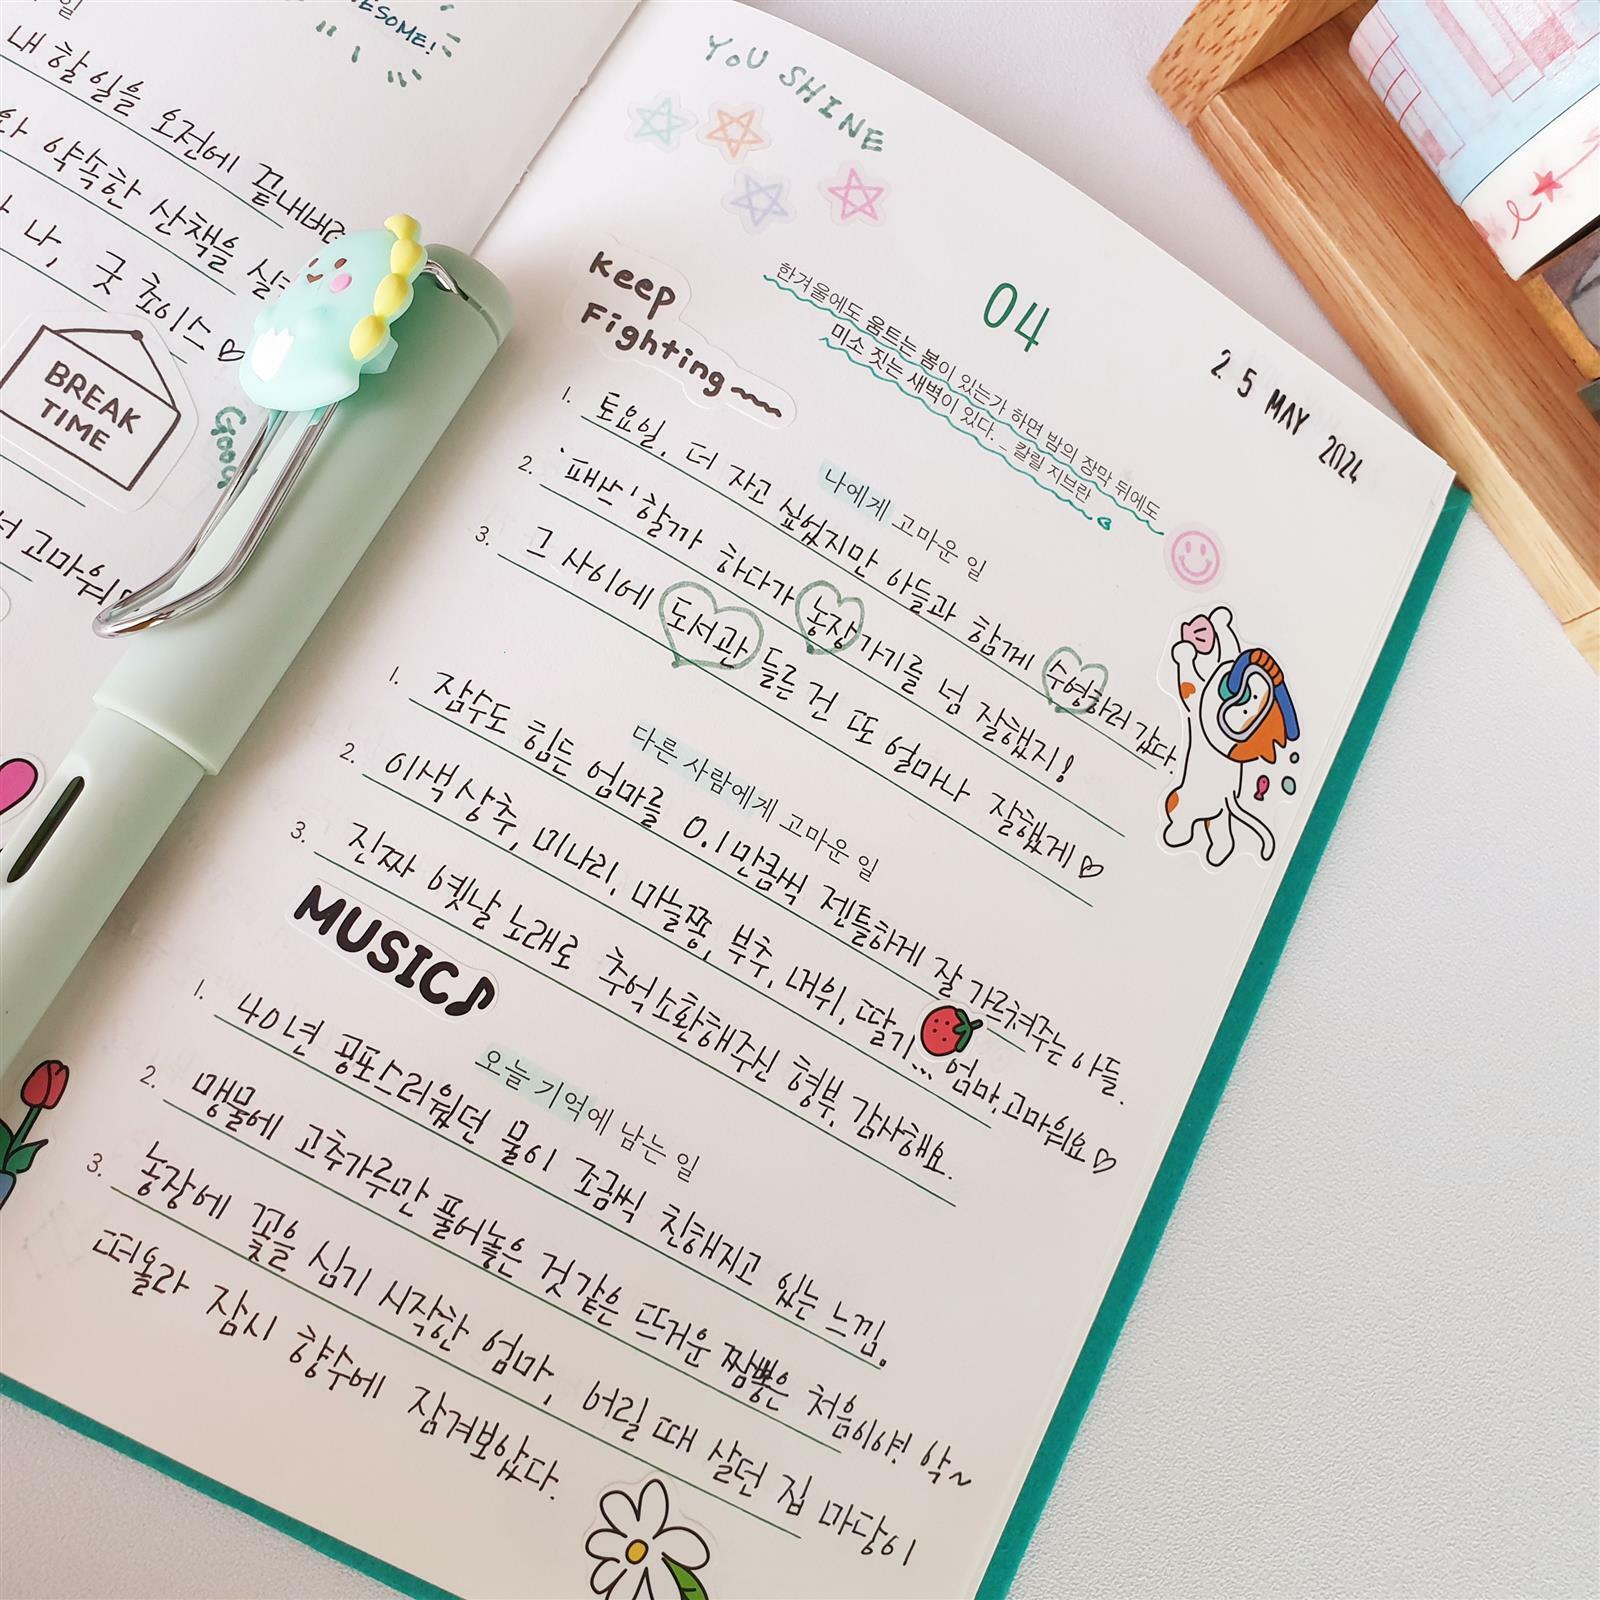 일
AWESOME!
내 할 일을 오전에 끝내버리
약속한 산책을 실
나, 굿 초이스♡
BREAK
TIME
Good
고마워♡
YOU SHINE
Keep
Fighting~~
04
25 MAY 2024
한겨울에도 움트는 봄이 있는가 하면 밤의 장막 뒤에도
미소 짓는 새벽이 있다. _ 칼릴 지브란
나에게 고마운 일
1. 토요일, 더 자고 싶었지만 아들과 함께 수영하러 갔다.
2. '패스' 할까 하다가 농장가기를 넘 잘했지!
3. 그 사이에 도서관 들른 건 또 얼마나 잘했게♡
다른 사람에게 고마운 일
1. 잠수도 힘든 엄마를 0.1만큼씩 젠틀하게 잘 가르쳐주는 아들.
2. 이색상추, 미나리, 마늘쫑, 부추, 머위, 딸기... 엄마, 고마워요♡
3. 진짜 옛날 노래로 추억소환해주신 형부, 감사해요.
MUSIC♪
오늘 기억에 남는 일
1. 40년 공포스러웠던 물이 조금씩 친해지고 있는 느낌.
2. 맹물에 고추가루만 풀어놓은 것 같은 뜨거운 짬뽕은 처음이야! 악~
3. 농장에 꽃을 심기 시작한 엄마, 어릴 때 살던 집 마당이
떠올라 잠시 향수에 잠겨보았다.